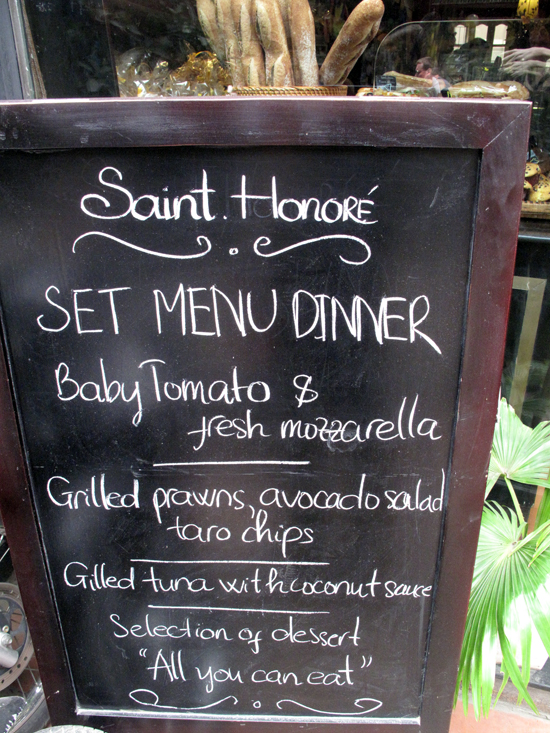 Saint. HonoRÉ
SET MENU DINNER
Baby Tomato &
fresh mozzarella
Grilled prawns, avocado salad
taro chips
Gilled tuna with coconut sauce
Selection of dessert
"All you can eat"